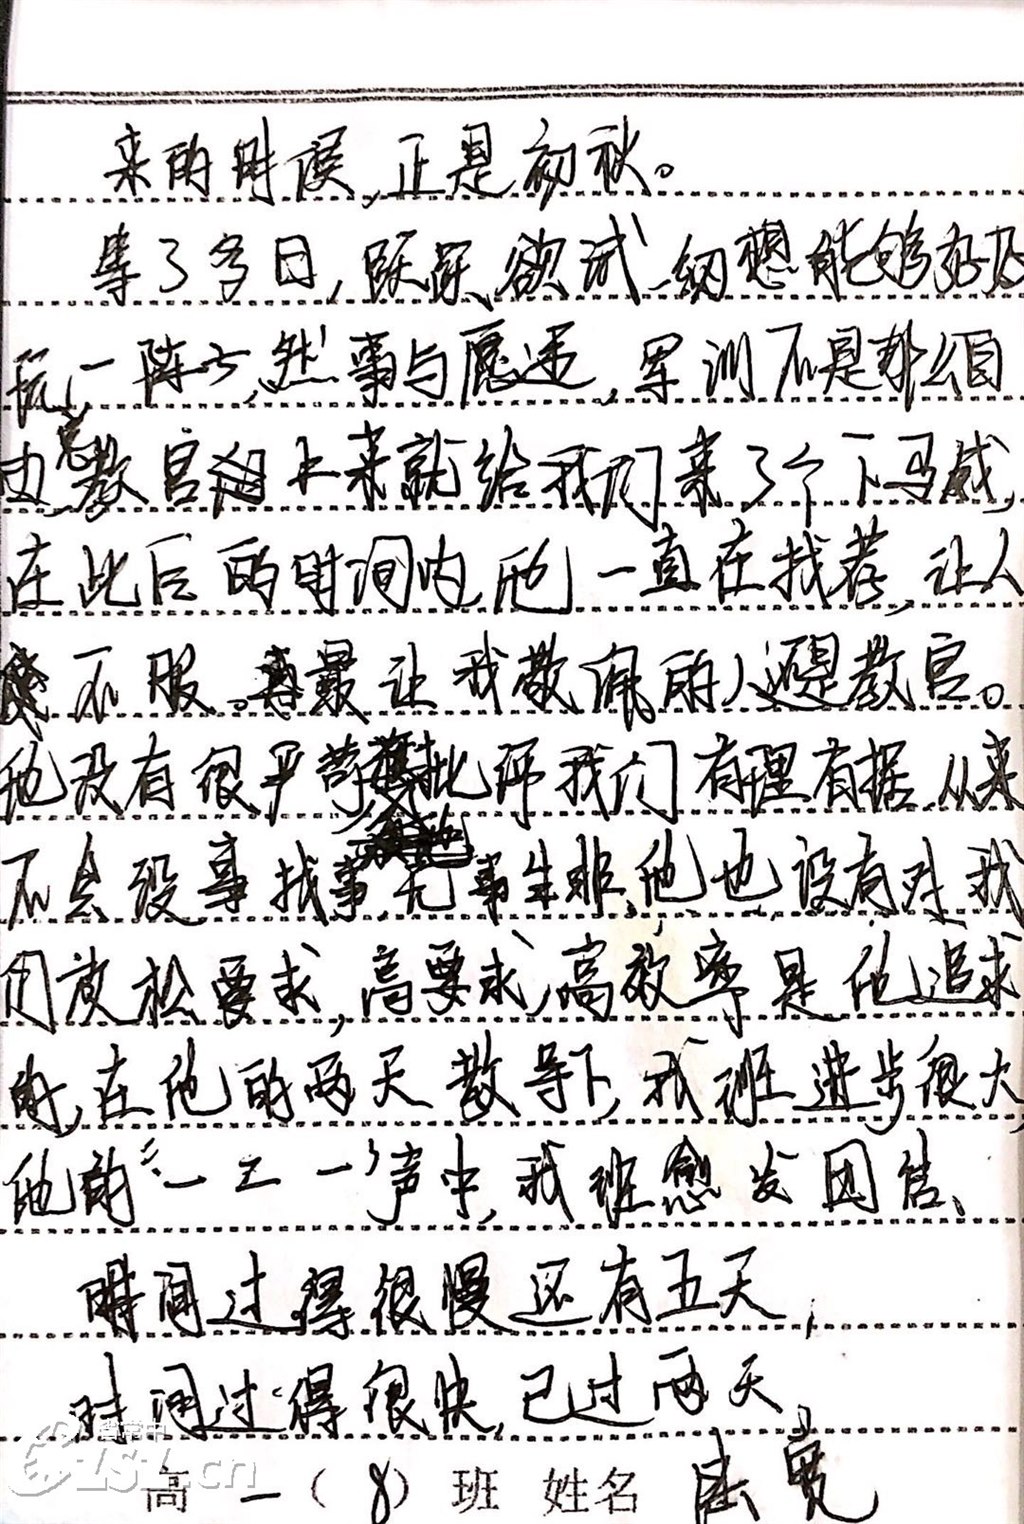 来的时候,正是初秋。
等了多日,跃跃欲试,幻想能够好好
玩一阵子,然事与愿违,军训不是那么自
由,总教官一上来就给我们来了个下马威,
在此后的时间内,他一直在找茬,让人
不服。最让我敬佩的人还是教官。
他没有很严苛,批评我们有理有据,从来
不会没事找事,无事生非,他也没有对我
们放松要求,高要求,高效率是他追求
的,在他的两天教导下,我班进步很大,
他的“一二一”声中,我班愈发团结、
时间过得很慢还有五天,
时间过得很快,已过两天,
高一(8)班 姓名
zszz.cn